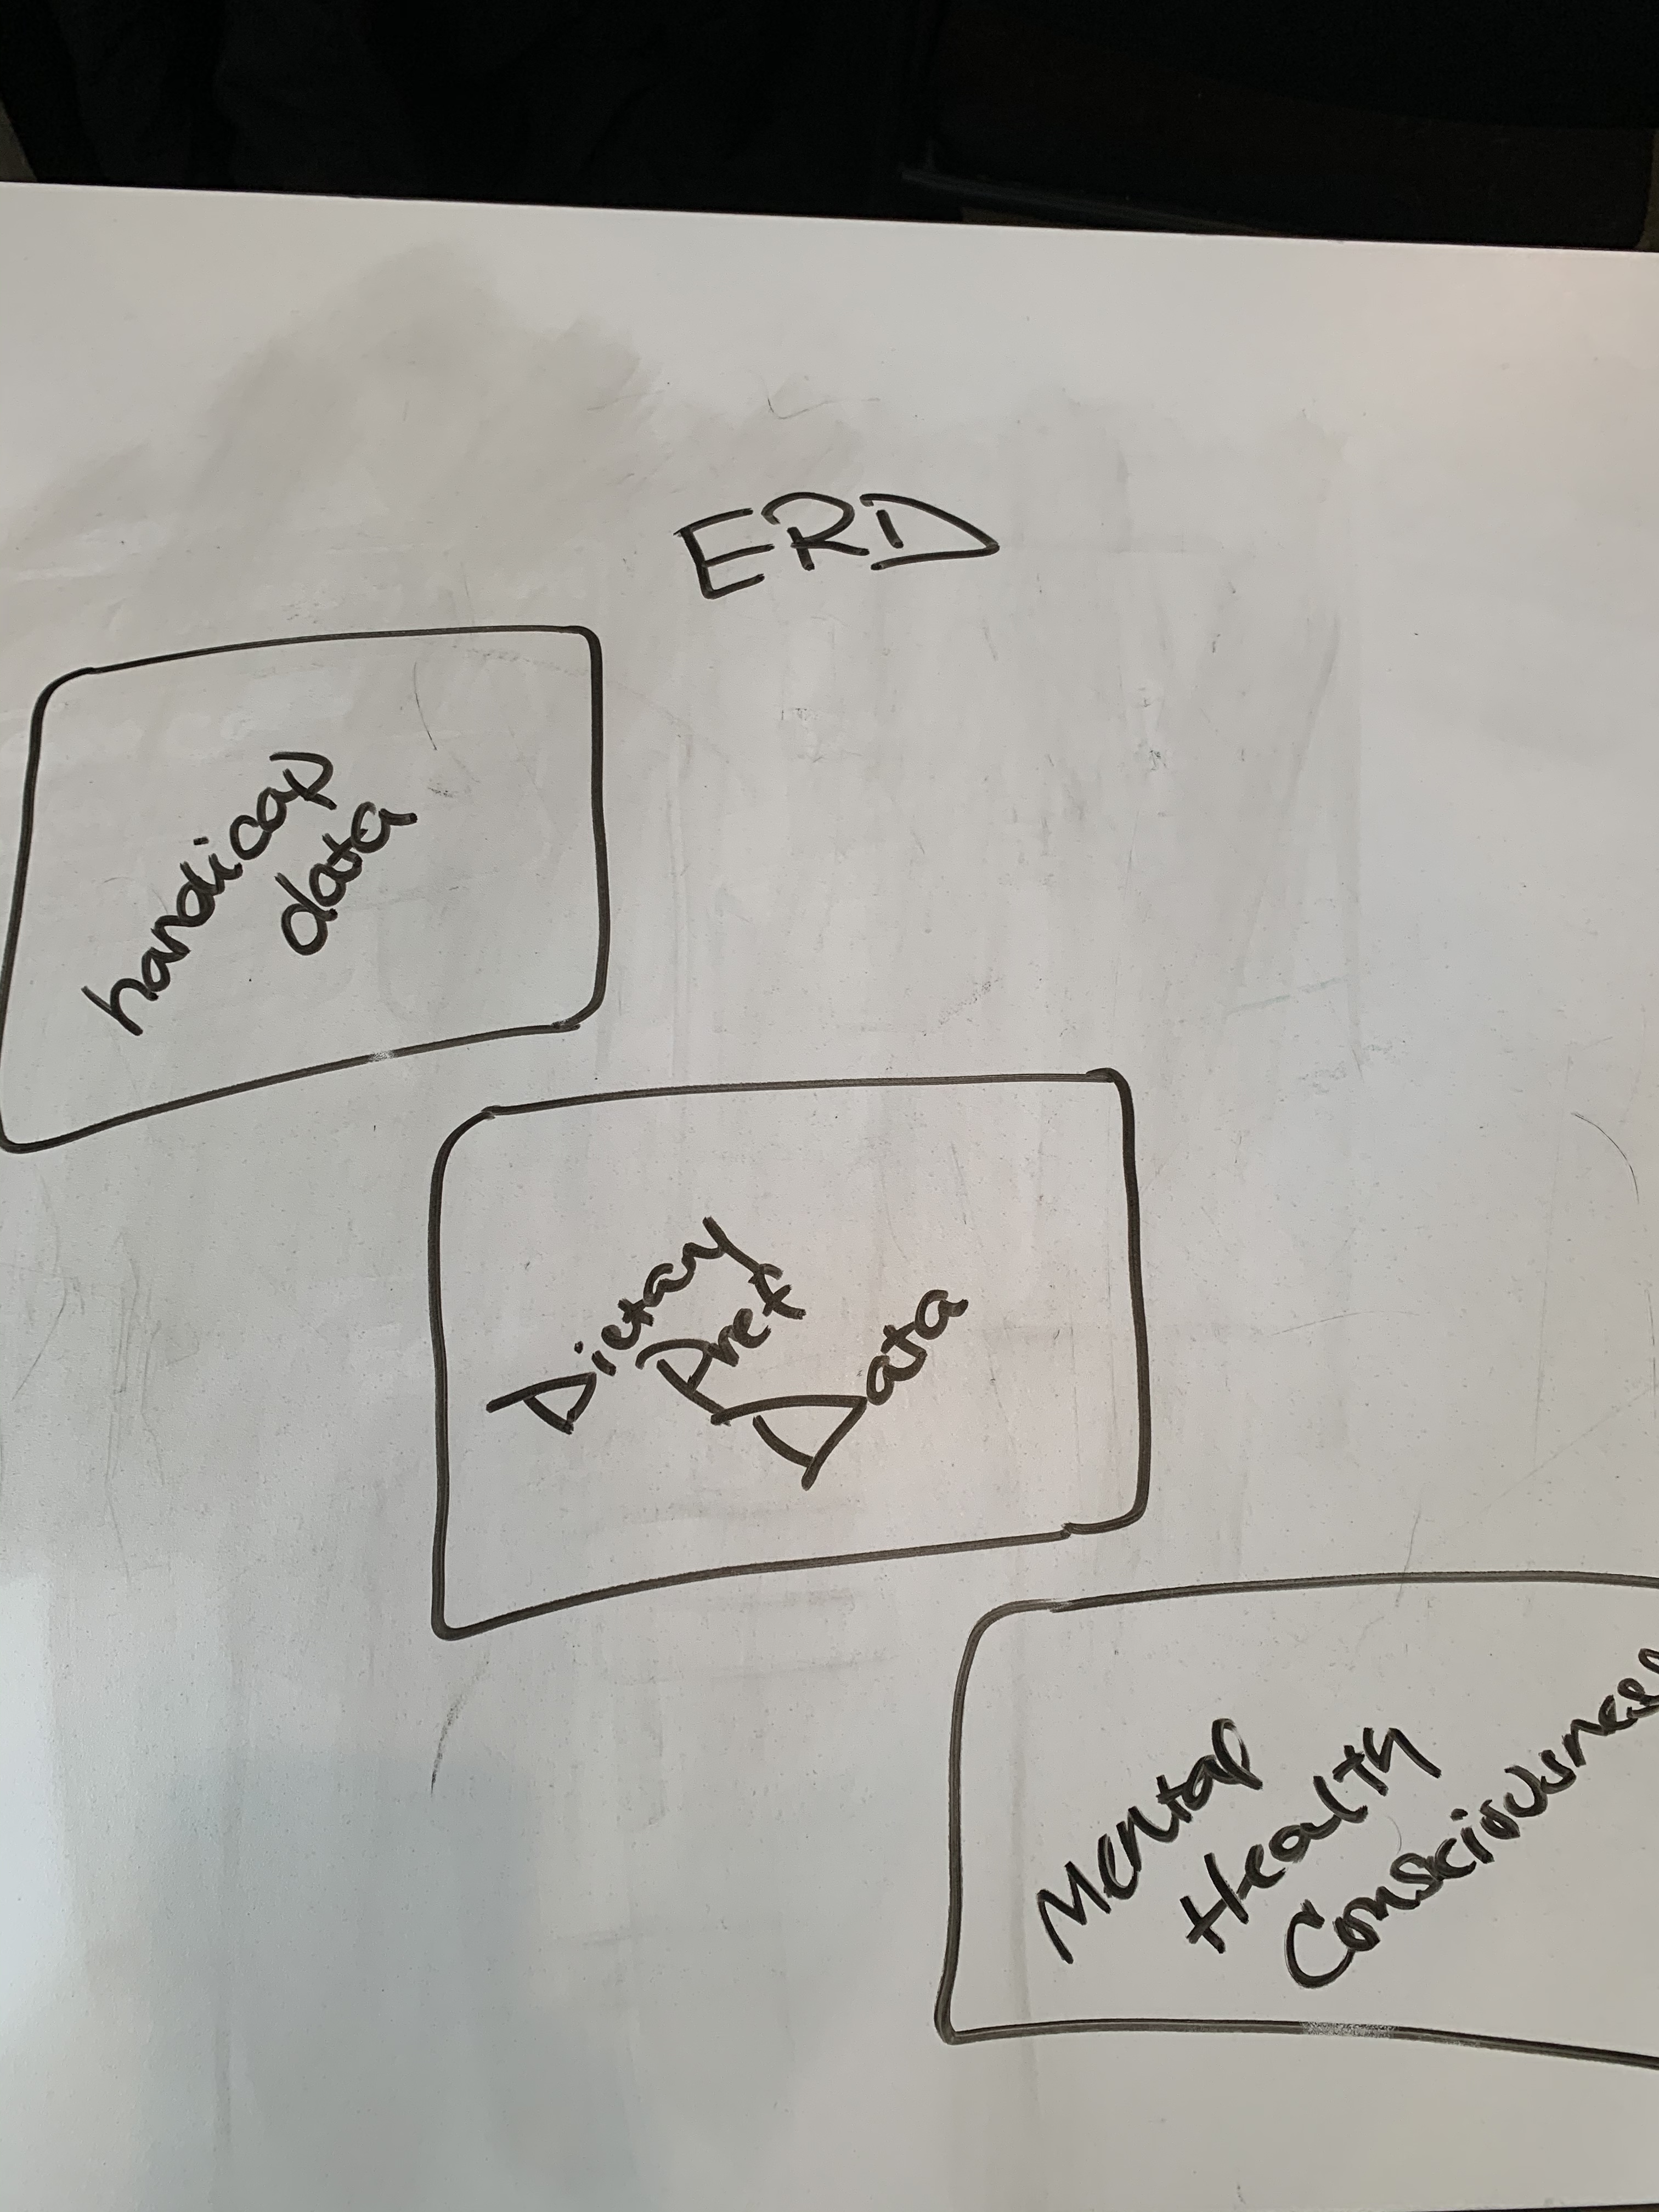 ERD
handicap
data
Dietary
Pref
Data
Mental
Health
Consciousness